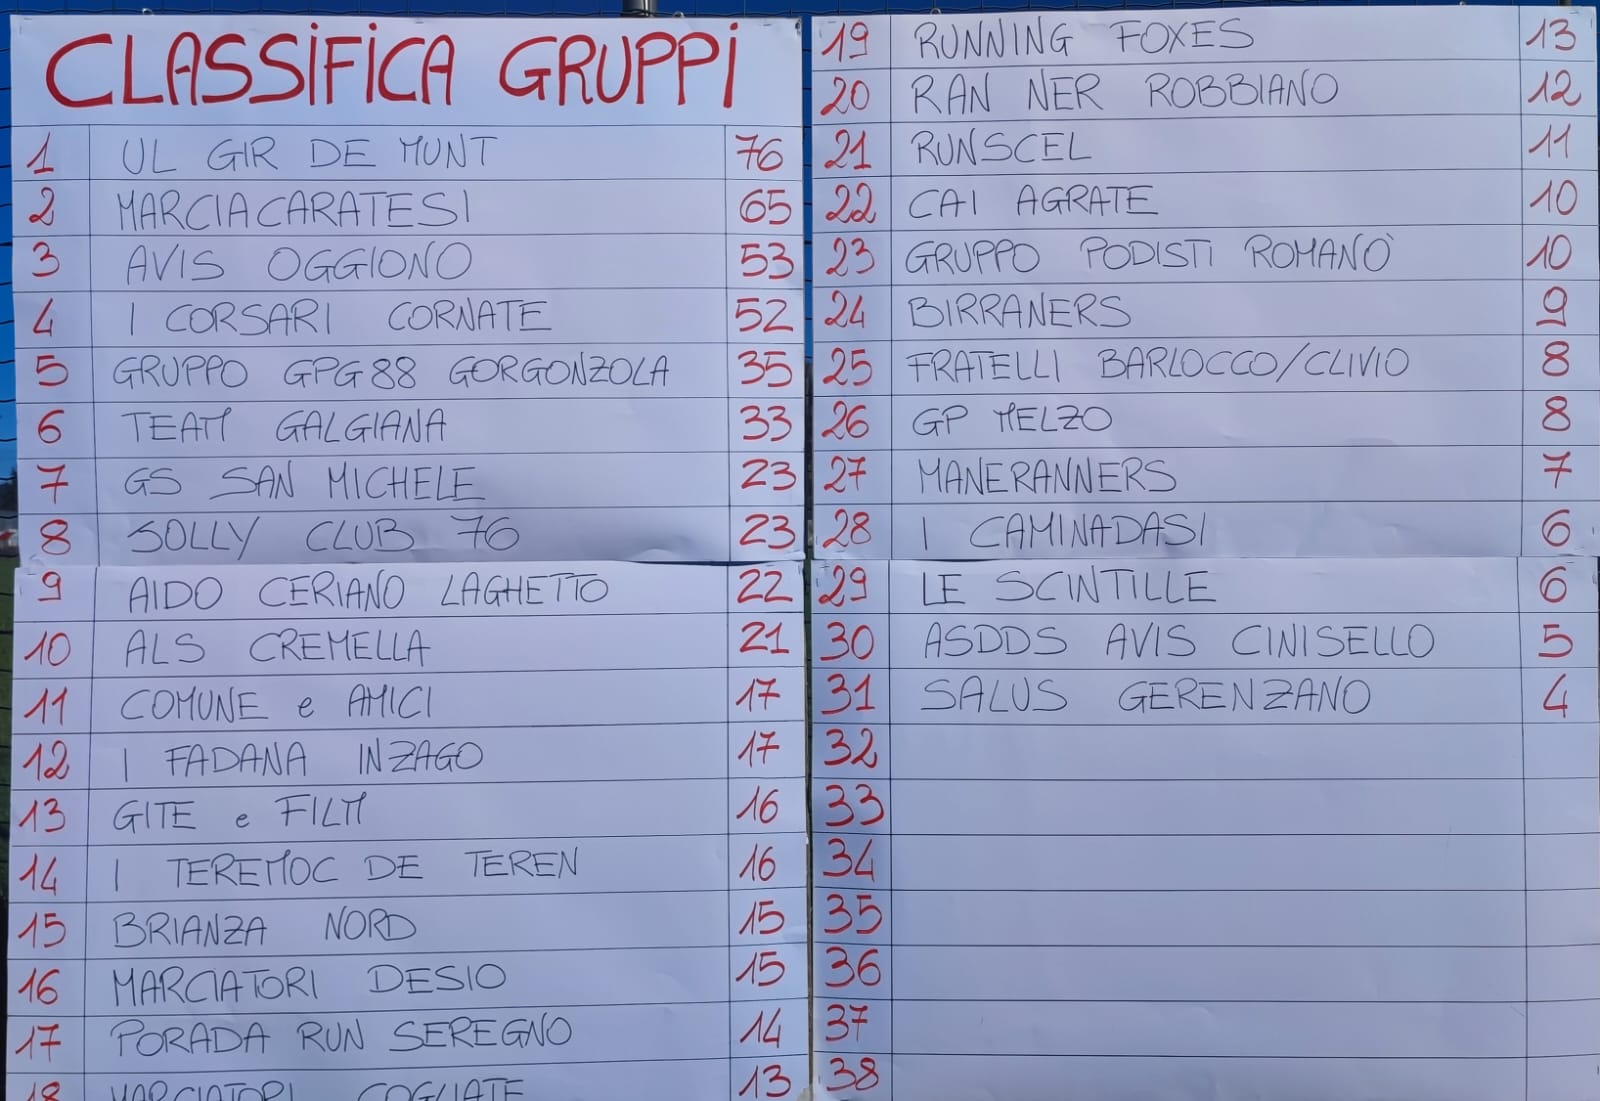 CLASSIFICA GRUPPI
1 UL GIR DE MUNT 76
2 MARCIACARATESI 65
3 AVIS OGGIONO 53
4 I CORSARI CORNATE 52
5 GRUPPO GPG88 GORGONZOLA 35
6 TEAM GALGIANA 33
7 GS SAN MICHELE 23
8 SOLLY CLUB 76 23
9 AIDO CERIANO LAGHETTO 22
10 ALS CREMELLA 21
11 COMUNE e AMICI 17
12 I FADANA INZAGO 17
13 GITE e FILM 16
14 I TEREMOC DE TEREN 16
15 BRIANZA NORD 15
16 MARCIATORI DESIO 15
17 PORADA RUN SEREGNO 14
18 MARCIATORI COGLIATE 13
19 RUNNING FOXES 13
20 RAN NER ROBBIANO 12
21 RUNSCEL 11
22 CAI AGRATE 10
23 GRUPPO PODISTI ROMANO' 10
24 BIRRANERS 9
25 FRATELLI BARLOCCO/CLIVIO 8
26 GP MELZO 8
27 MANERANNERS 7
28 I CAMINADASI 6
29 LE SCINTILLE 6
30 ASDDS AVIS CINISELLO 5
31 SALUS GERENZANO 4
32
33
34
35
36
37
38